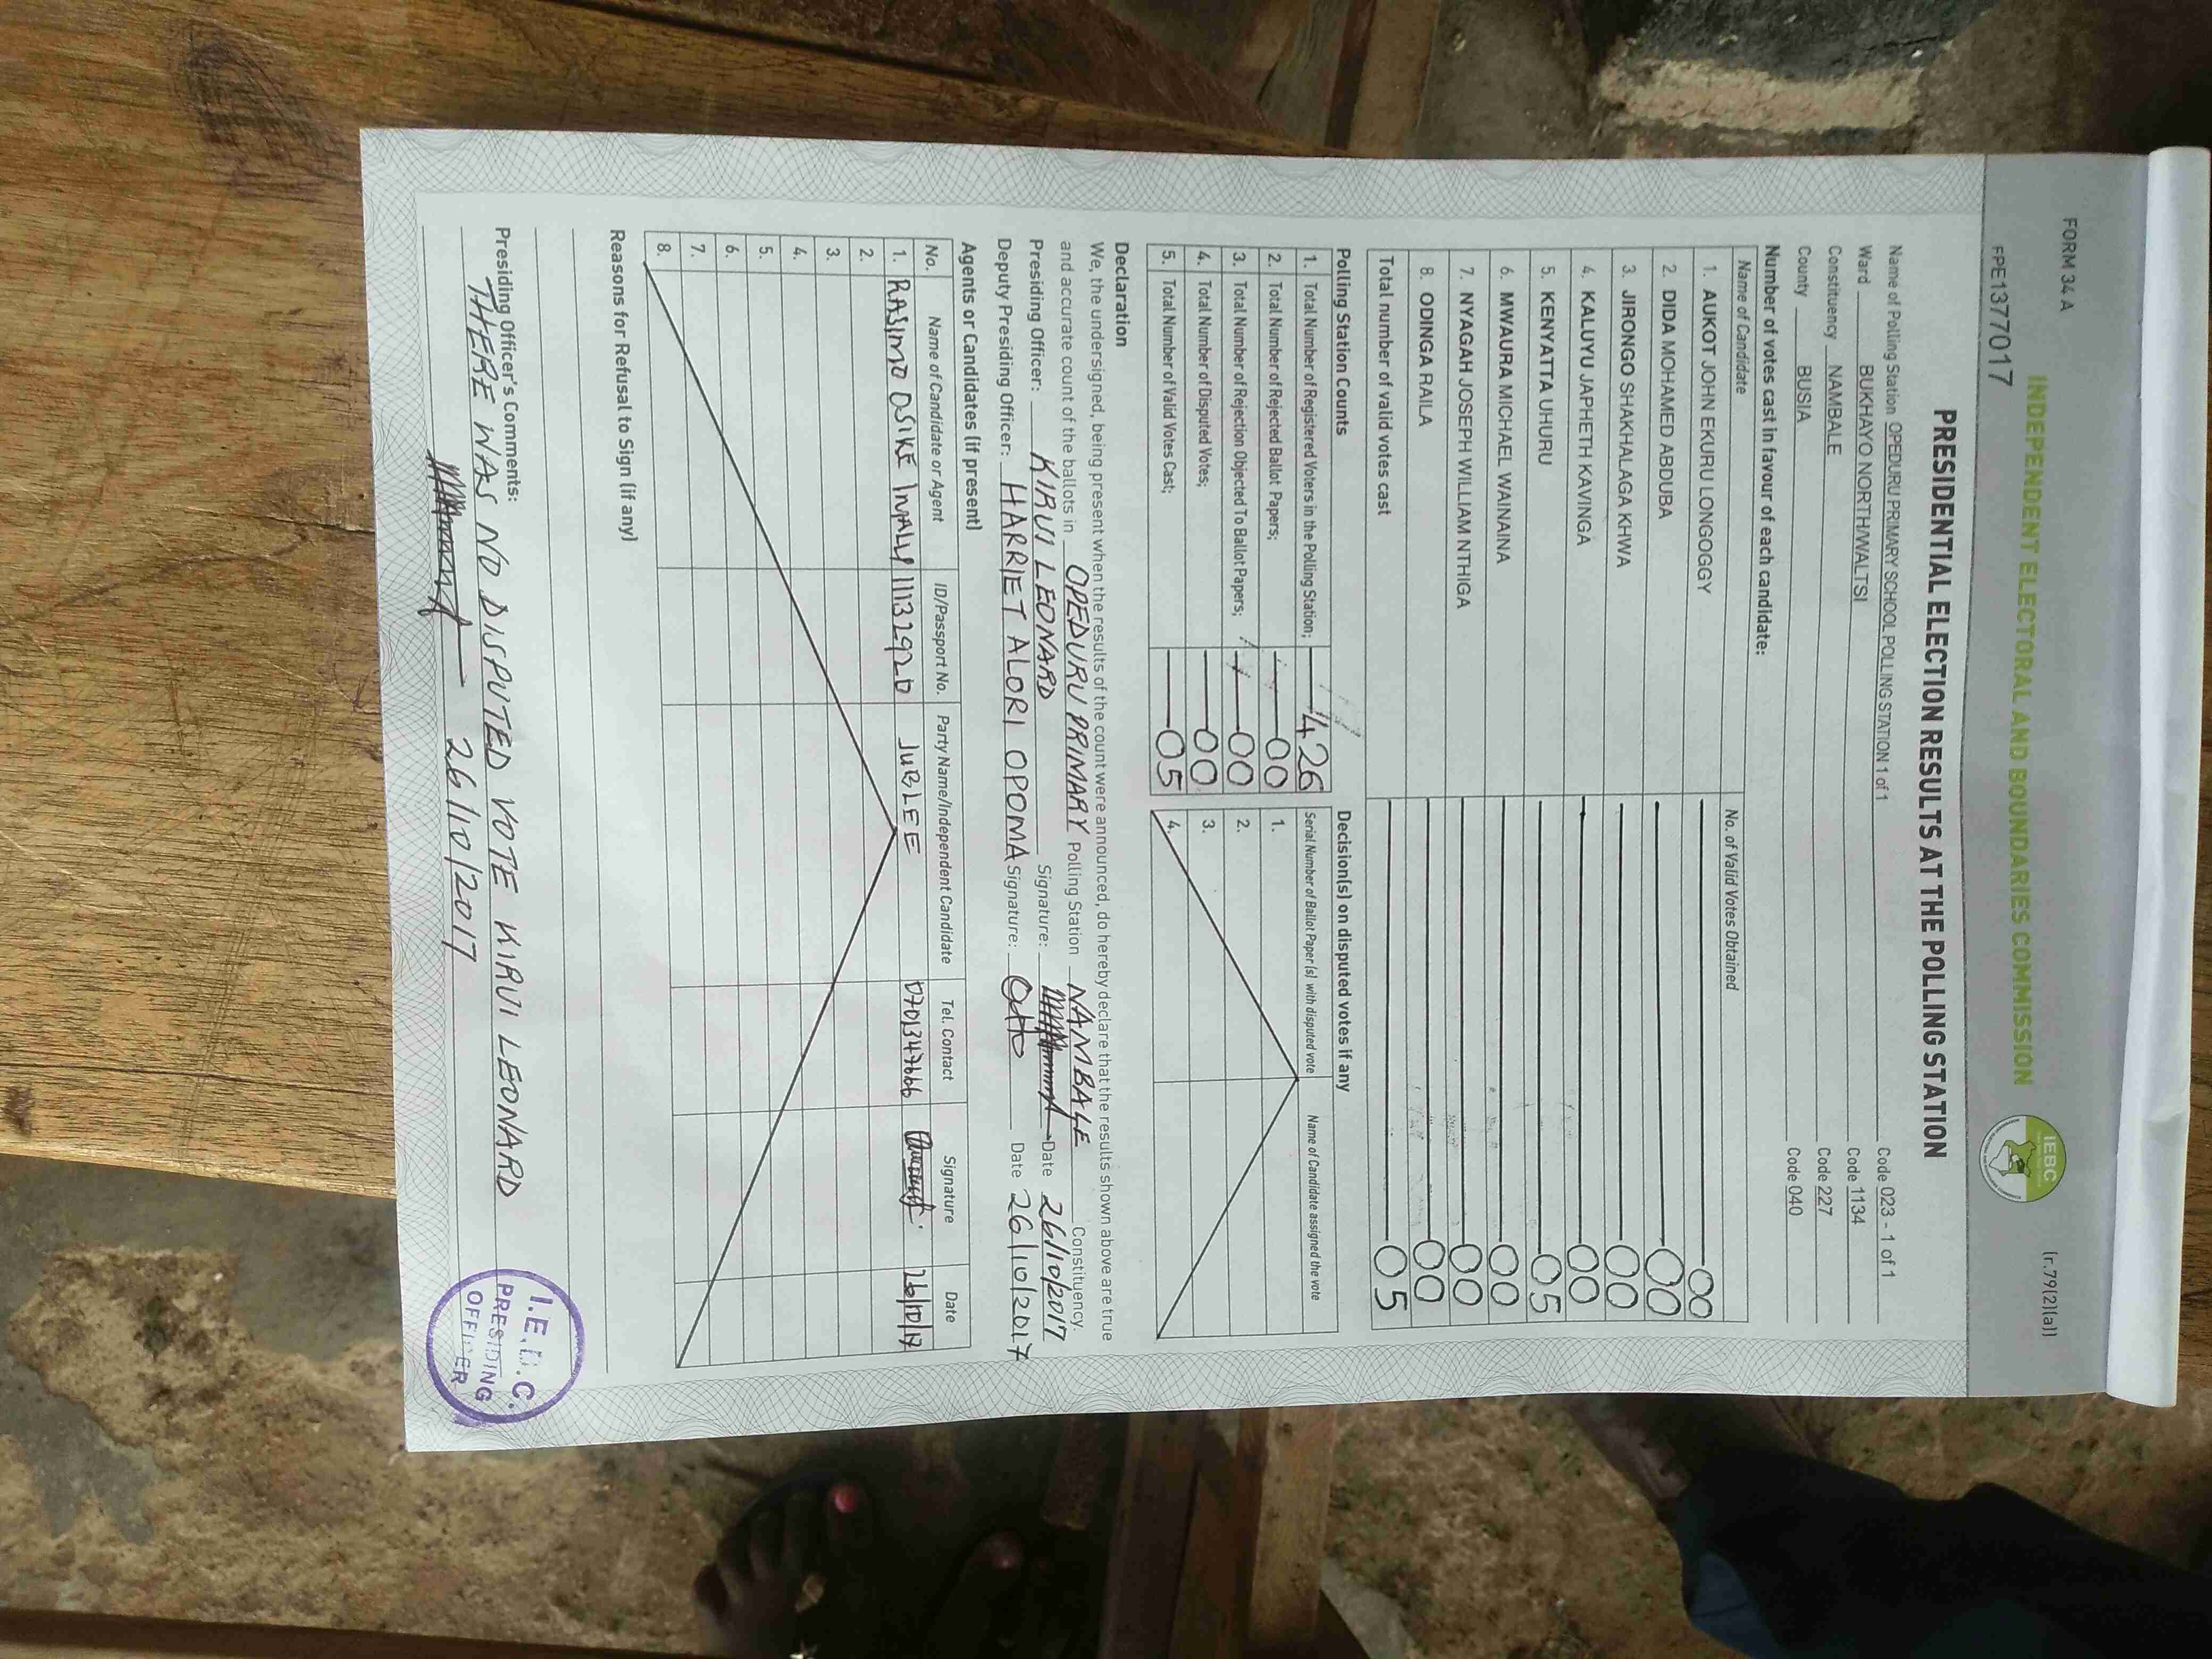 FORM 34 A
(r.79(2)(a))
INDEPENDENT ELECTORAL AND BOUNDARIES COMMISSION
IEBC
FPE1377017
PRESIDENTIAL ELECTION RESULTS AT THE POLLING STATION
Name of Polling Station OPEDURU PRIMARY SCHOOL POLLING STATION 1 of 1 Code 023 - 1 of 1
Ward BUKHAYO NORTH/WALTSI Code 1134
Constituency NAMBALE Code 227
County BUSIA Code 040
Number of votes cast in favour of each candidate:
Name of Candidate No. of Valid Votes Obtained
1. AUKOT JOHN EKURU LONGOGGY 00
2. DIDA MOHAMED ABDUBA 00
3. JIRONGO SHAKHALAGA KHWA 00
4. KALUYU JAPHETH KAVINGA 00
5. KENYATTA UHURU 05
6. MWAURA MICHAEL WAINAINA 00
7. NYAGAH JOSEPH WILLIAM NTHIGA 00
8. ODINGA RAILA 00
Total number of valid votes cast 05
Polling Station Counts
1. Total Number of Registered Voters in the Polling Station; 426
2. Total Number of Rejected Ballot Papers; 00
3. Total Number of Rejection Objected To Ballot Papers; 00
4. Total Number of Disputed Votes; 00
5. Total Number of Valid Votes Cast; 05
Decision(s) on disputed votes if any
Serial Number of Ballot Paper (s) with disputed vote Name of Candidate assigned the vote
1.
2.
3.
4.
Declaration
We, the undersigned, being present when the results of the count were announced, do hereby declare that the results shown above are true
and accurate count of the ballots in OPEDURU PRIMARY Polling Station NAMBALE Constituency.
Presiding Officer: KIRUI LEONARD Signature: Date 26/10/2017
Deputy Presiding Officer: HARRIET ALORI OPOMA Signature: Date 26/10/2017
Agents or Candidates (if present)
No. Name of Candidate or Agent ID/Passport No. Party Name/Independent Candidate Tel. Contact Signature Date
1. RASIMO OSIKE 11132920 JUBLEE 26/10/17
2.
3.
4.
5.
6.
7.
8.
Reasons for Refusal to Sign (if any)
Presiding Officer's Comments:
THERE WAS NO DISPUTED VOTE KIRUI LEONARD
26/10/2017
I.E.B.C.
PRESIDING
OFFICER